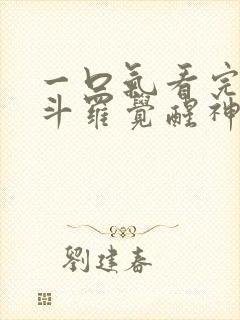 一口氣看完
斗羅覺醒神
劉建春